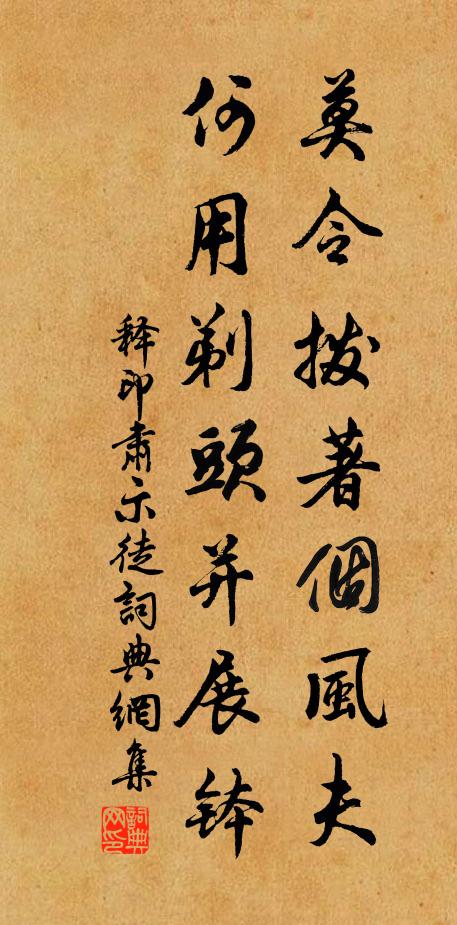 莫令撥著個風夫
何用剃頭并展鉢
释印肅示徒詞典網集
詞典网印